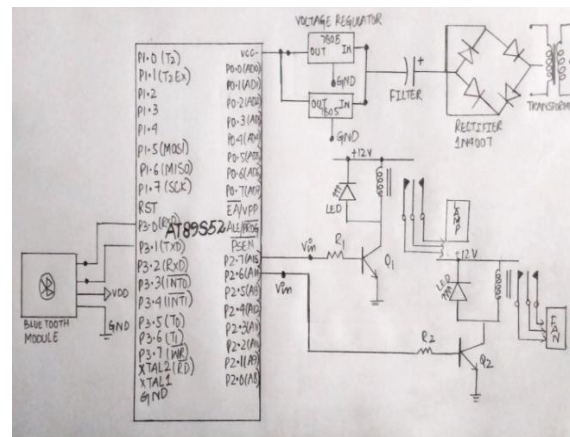 VOLTAGE REGULATOR
7805
OUT IN
GND
OUT IN
7805
GND
+
FILTER
RECTIFIER
1N4007
TRANSFORM
P1.0 (T2)
P1.1 (T2EX)
P1.2
P1.3
P1.4
P1.5 (MOSI)
P1.6 (MISO)
P1.7 (SCK)
RST
P3.0 (RXD)
P3.1 (TXD)
P3.2 (RXD)
P3.3 (INT0)
P3.4 (INT1)
P3.5 (T0)
P3.6 (T1)
P3.7 (WR)
XTAL2 (RD)
XTAL1
GND
AT89S52
VCC
P0.0 (AD0)
P0.1 (AD1)
P0.2 (AD2)
P0.3 (AD3)
P0.4 (AD4)
P0.5 (AD5)
P0.6 (AD6)
P0.7 (AD7)
EA/VPP
ALE/PROG
PSEN
P2.7 (A15
P2.6 (A14
P2.5 (A13
P2.4 (A12
P2.3 (A11
P2.2 (A10
P2.1 (A9)
P2.0 (A8)
BLUETOOTH
MODULE
VDD
GND
Vin
Vin
R1
Q1
+12V
LED
LAMP
+12V
LED
FAN
R2
Q2